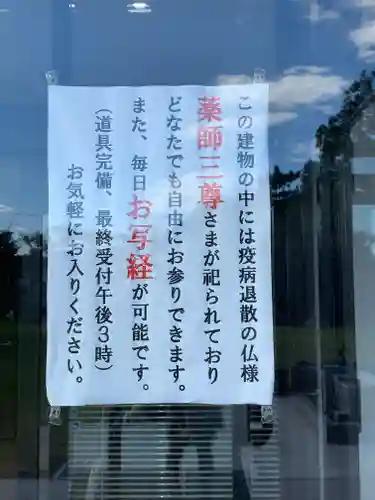 この建物の中には疫病退散の仏様
薬師三尊さまが祀られており
どなたでも自由にお参りできます。
また、毎日お写経が可能です。
（道具完備、最終受付午後３時）
お気軽にお入りください。